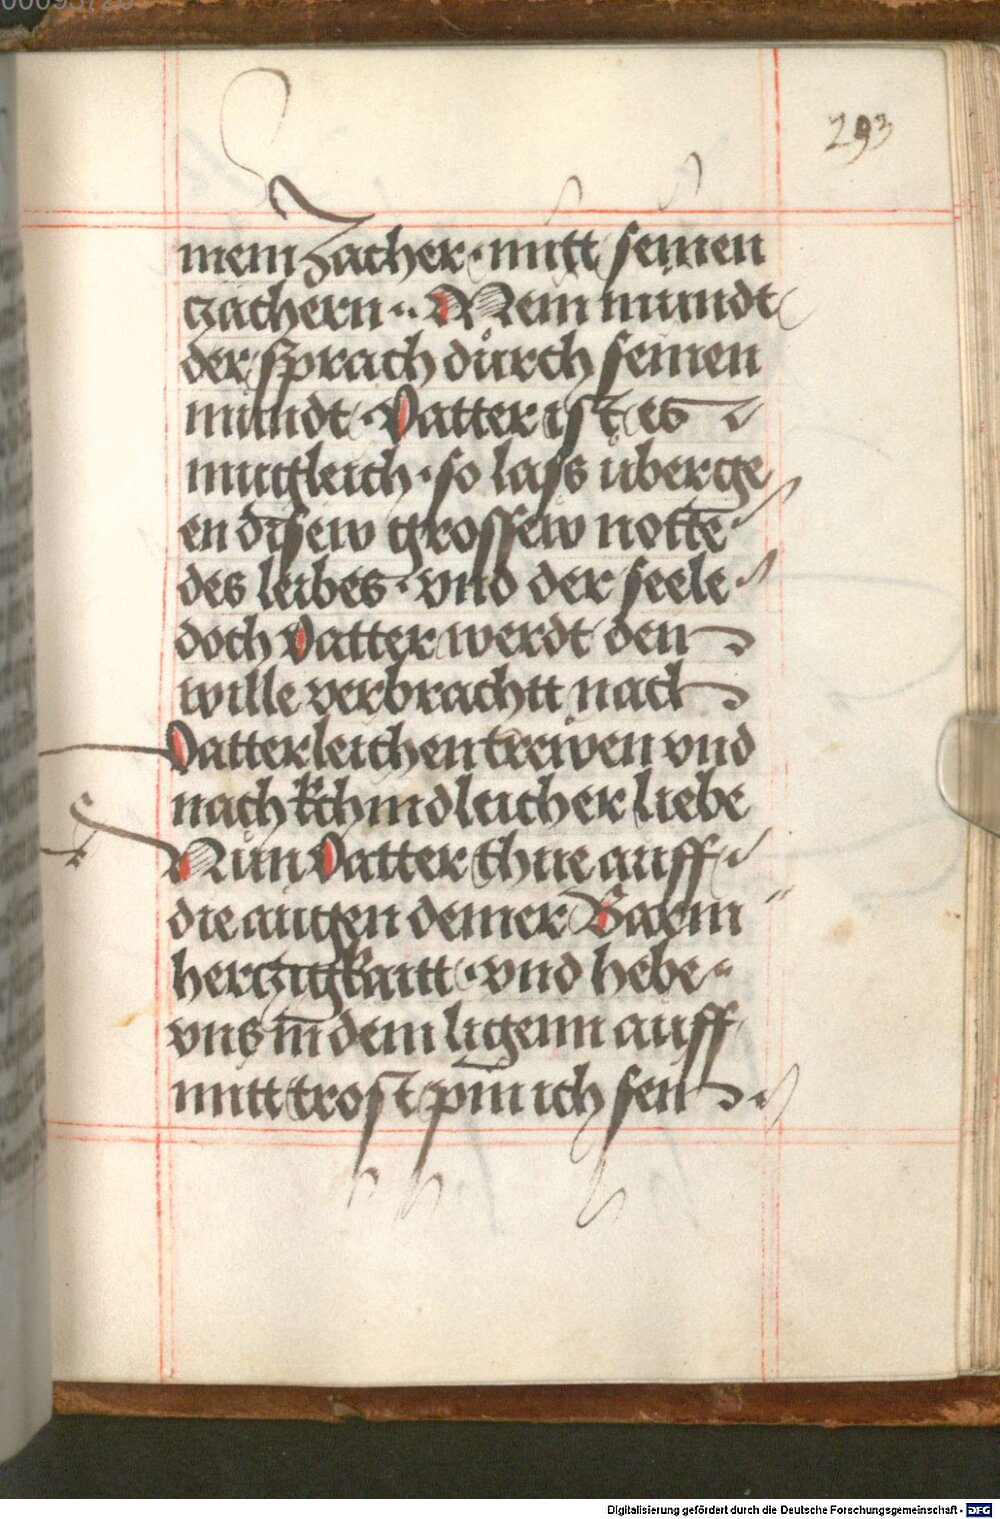 293
mein Zacher · mitt seinen
zachern ·· Mein mundt
der sprach durch seinen
mundt · Vatter ist es
mugleich · so lass uberge
en disew grossew notte
des leibes · vnd der seele
doch Vatter werdt den
wille verbrachtt nach
Vatterleichen trewen vnd
nach kchindleicher liebe
Nun Vatter thue auff
die augen deiner Barm
herczigkaitt · vnd hebe
vns in dem ligenn auff
mitt trost pin ich sein
Digitalisierung gefördert durch die Deutsche Forschungsgemeinschaft - DFG